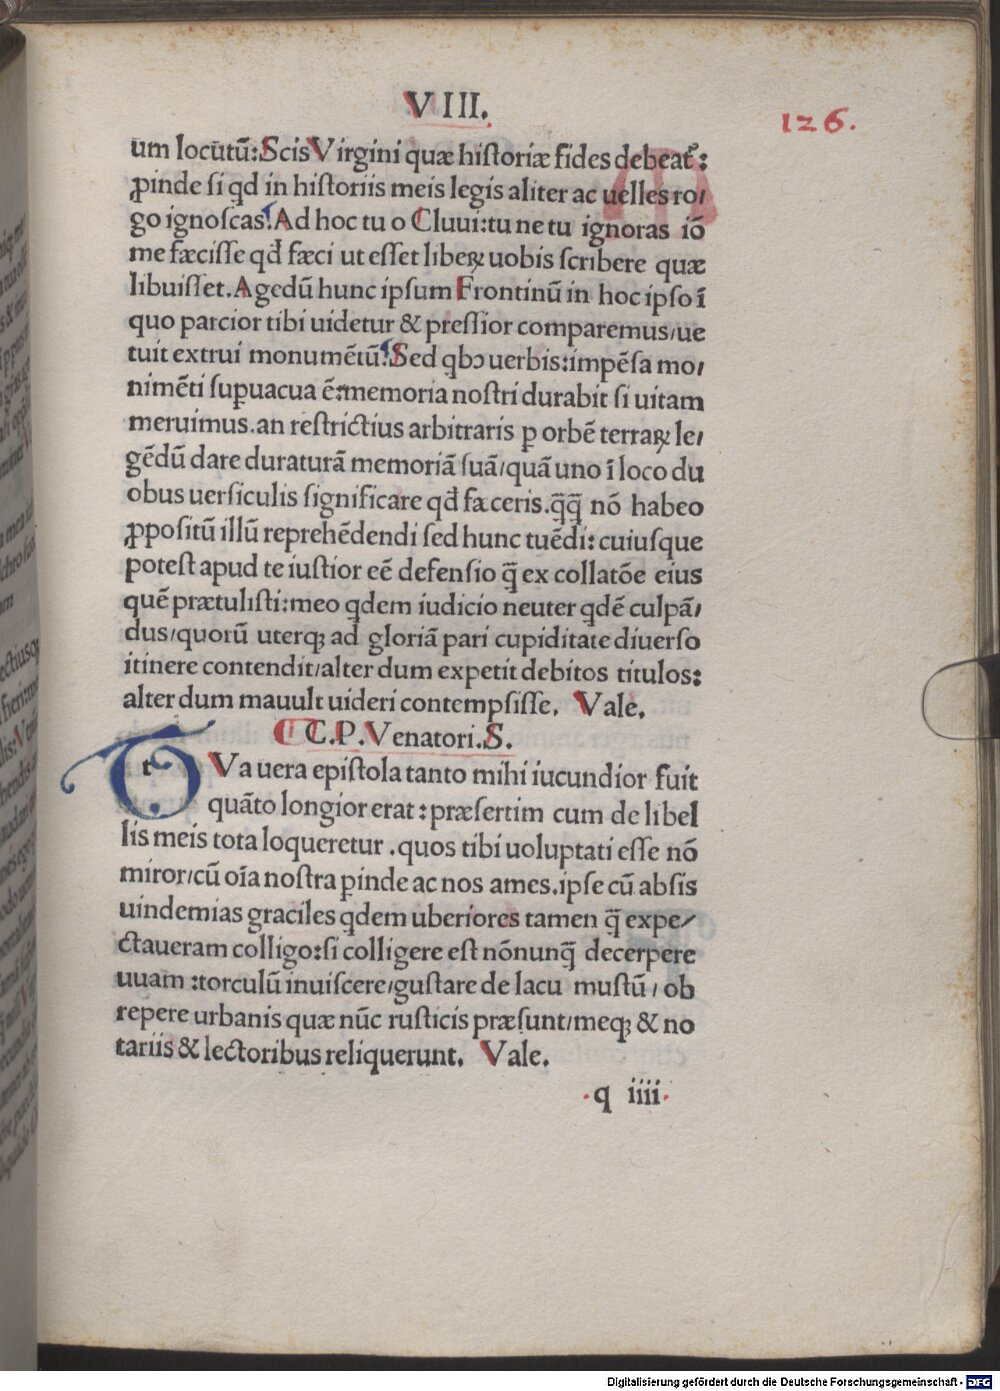 VIII.
126.
um locutū:Scis Virgini quæ historiæ fides debeat᷑:
ꝓinde si qd in historiis meis legis aliter ac uelles ro/
go ignoscas! Ad hoc tu o Cluui:tu ne tu ignoras iō
me fæcisse qđ fæci ut esset liberꝝ uobis scribere quæ
libuisset.Agedū hunc ipsum Frontinū in hoc ipso ī
quo parcior tibi uidetur & pressior comparemus/ue
tuit extrui monumētū! Sed qbꝰ uerbis:impēsa mo/
nimēti supuacua ē:memoria nostri durabit si uitam
meruimus.an restrictius arbitraris ꝑ orbē terrarꝝ le/
gēdū dare duraturā memoriā suā/quā uno ī loco du
obus uersiculis significare qđ fæceris.q̄q̄ nō habeo
ꝓpositū illū reprehēdendi sed hunc tuēdi:cuiusque
potest apud te iustior eē defensio q̄ ex collatōe eius
quē prætulisti:meo qdem iudicio neuter qdē culpā/
dus/quorū uterqꝫ ad gloriā pari cupiditate diuerso
itinere contendit/alter dum expetit debitos titulos:
alter dum mauult uideri contempsisse. Vale.
C.P.Venatori.S.
tVa uera epistola tanto mihi iucundior fuit
quāto longior erat:præsertim cum de libel
lis meis tota loqueretur.quos tibi uoluptati esse nō
miror/cū oīa nostra ꝑinde ac nos ames.ipse cū absis
uindemias graciles qdem uberiores tamen q̄ expe/
ctaueram colligo:si colligere est nōnunq̄ decerpere
uuam:torculū inuiscere/gustare de lacu mustū/ob
repere urbanis quæ nūc rusticis præsunt/meqꝫ & no
tariis & lectoribus reliquerunt. Vale.
q iiii
Digitalisierung gefördert durch die Deutsche Forschungsgemeinschaft - DFG